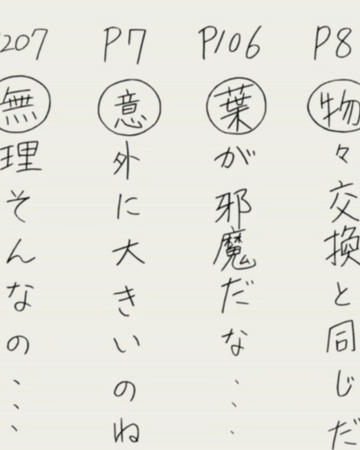 P8
物々交換と同じだ
P106
葉が邪魔だな...
P7
意外に大きいのね
207
無理そんなの...